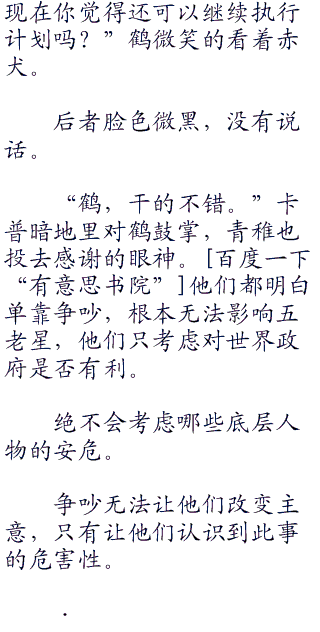 现在你觉得还可以继续执行
计划吗？”鹤微笑的看着赤
犬。
后者脸色微黑，没有说
话。
“鹤，干的不错。”卡
普暗地里对鹤鼓掌，青稚也
投去感谢的眼神。[百度一下
“有意思书院”]他们都明白
单靠争吵，根本无法影响五
老星，他们只考虑对世界政
府是否有利。
绝不会考虑哪些底层人
物的安危。
争吵无法让他们改变主
意，只有让他们认识到此事
的危害性。
.